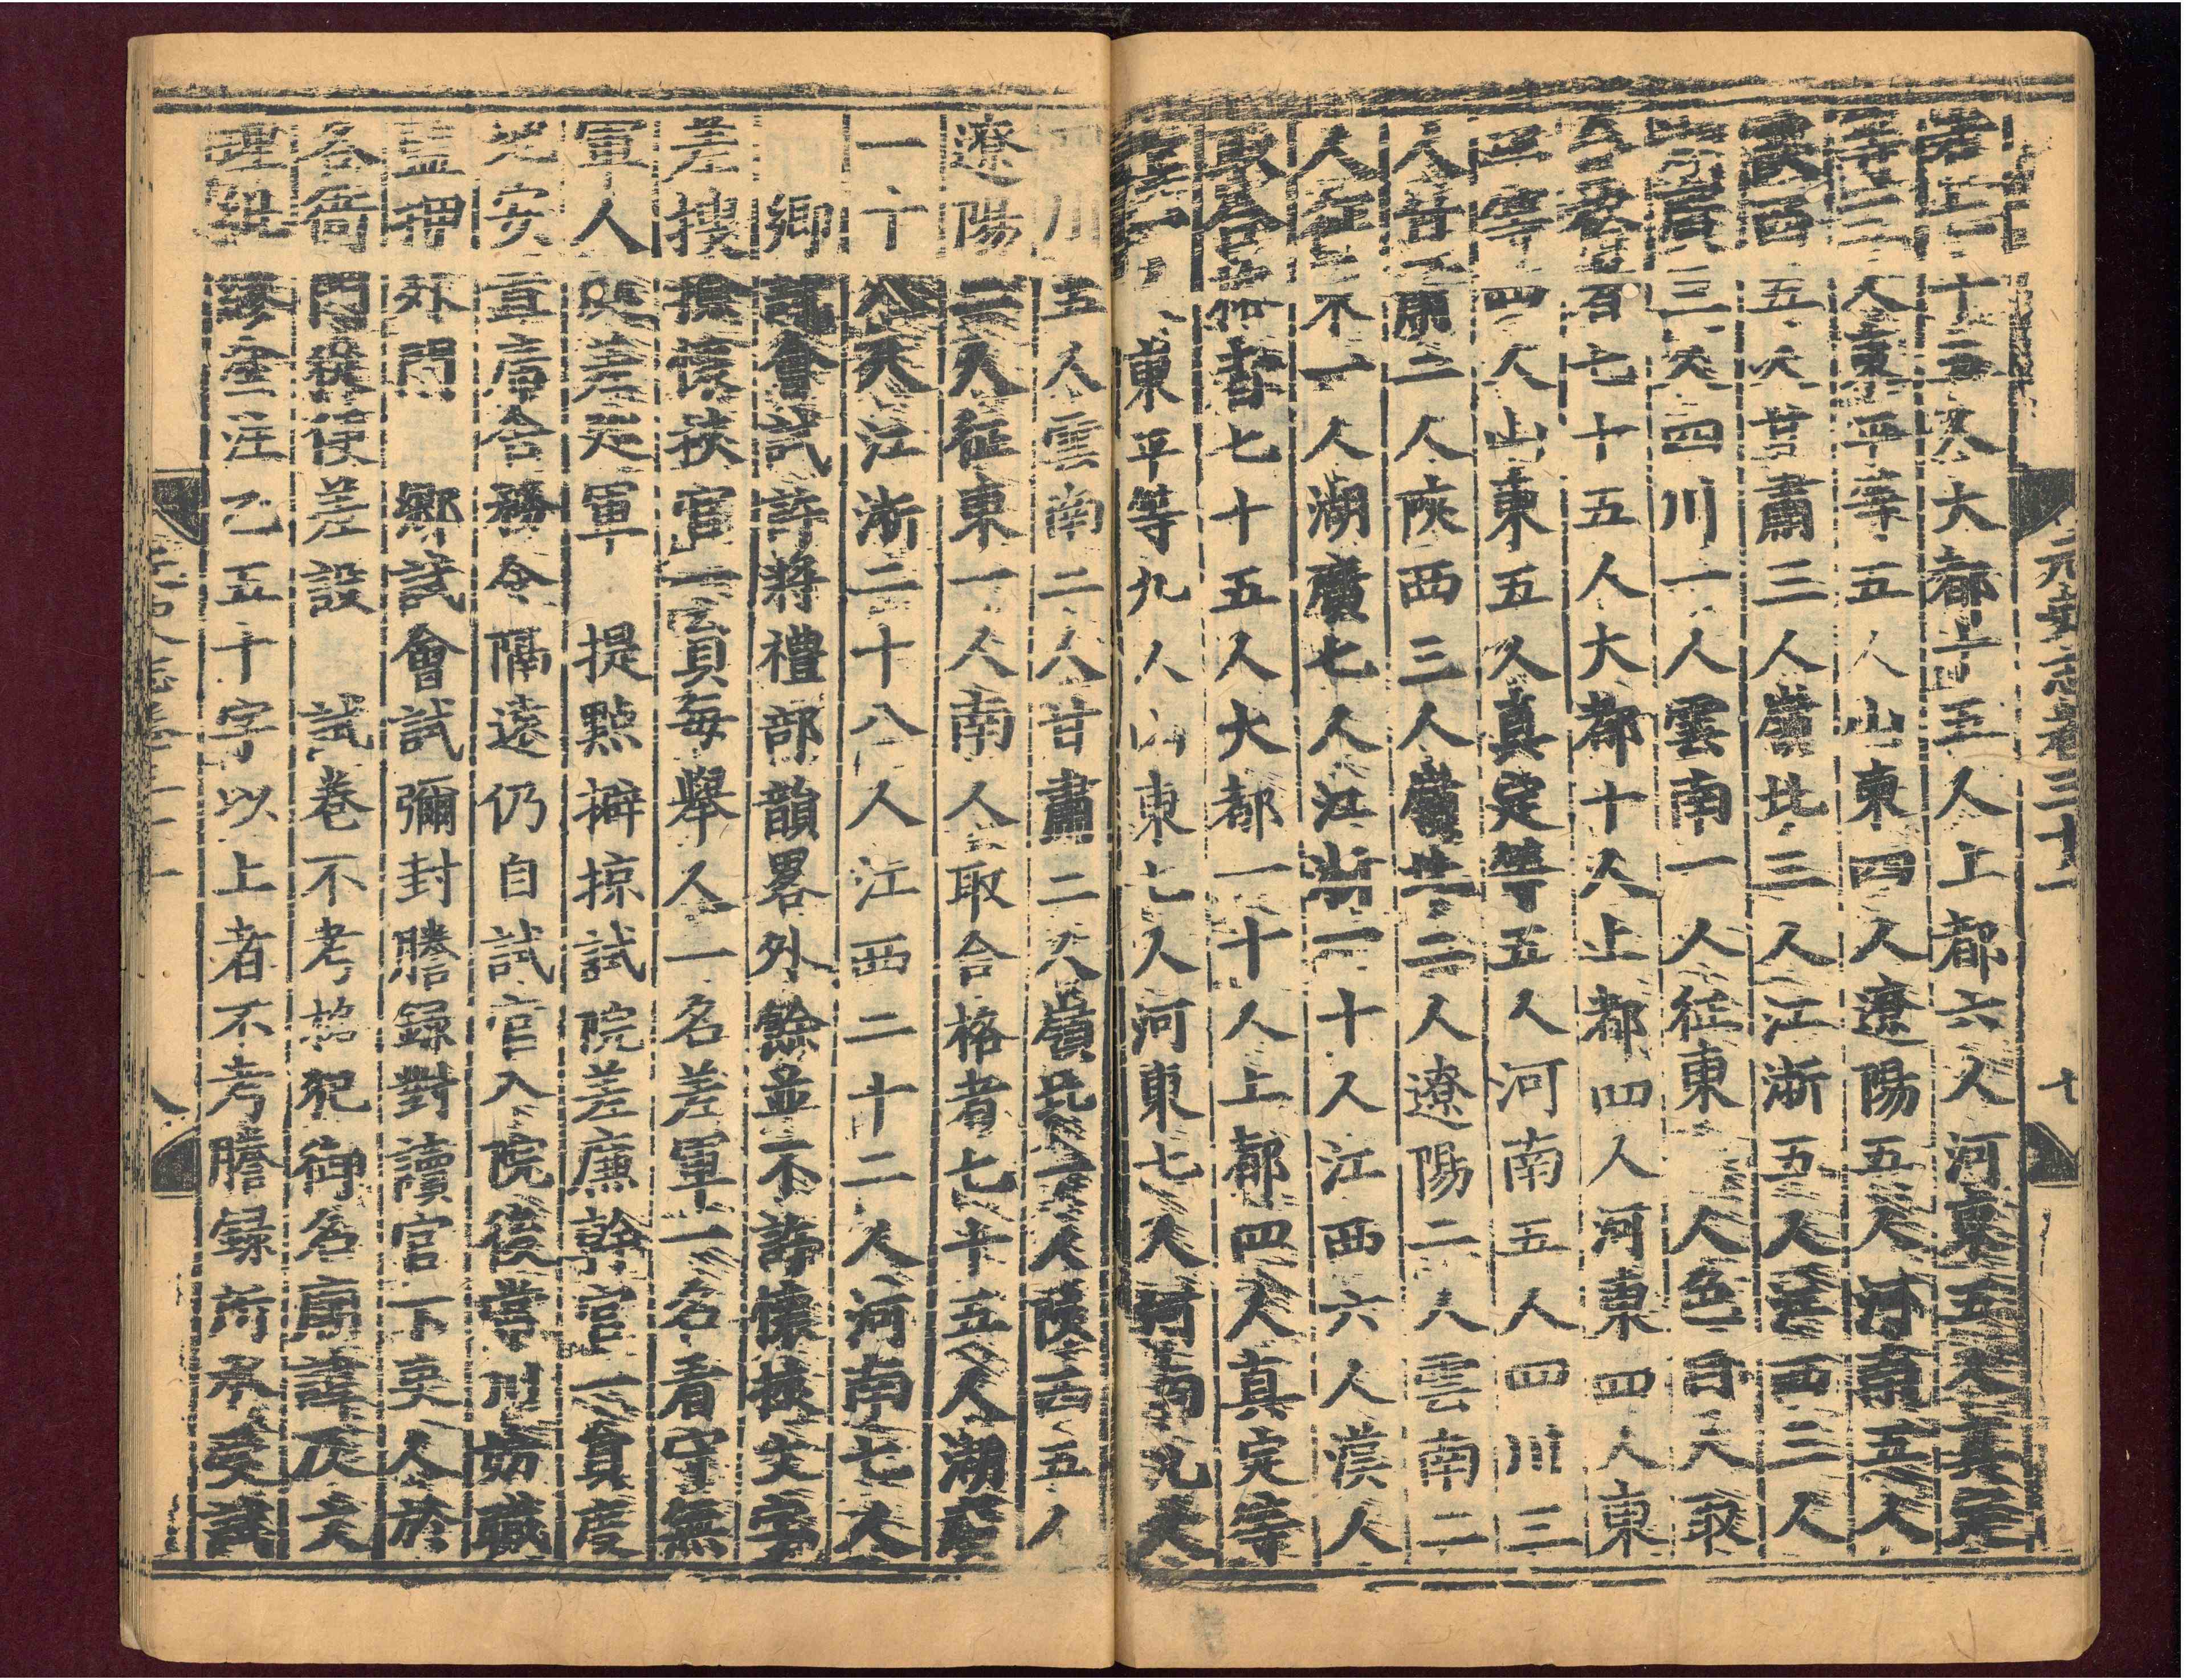 者上一十五人大都十五人上都六人河東五人真定
等五人東平等五人山東四人遼陽五人河南五人
陝西五人甘肅三人嶺北三人江浙五人江西三人
湖廣三人四川一人雲南一人征東一人色目人取
合格者七十五人大都十人上都四人河東四人東
平等四人山東五人真定等五人河南五人四川三
人甘肅二人陝西三人嶺北二人遼陽二人雲南二
人征東一人湖廣七人江浙一十人江西六人漢人
取合格者七十五人大都一十人上都四人真定等
十一人東平等九人山東七人河東七人河南九人
四川五人雲南二人甘肅二人嶺北一人陝西五人
遼陽二人征東一人南人取合格者七十五人湖廣
一十八人江浙二十八人江西二十二人河南七人
鄉試會試許將禮部韻畧外餘並不許懷挾文字
差搜撿懷挾官一員每舉人一名差軍一名看守無
軍人處差巡軍 提點擗掠試院差廉幹官一員度
地安置席舍務令隔遠仍自試官入院後常川妨職
監押外門 鄉試會試彌封謄錄對讀官下吏人於
各衙門從便差設 試卷不考格犯御名廟諱及文
理紕繆塗注乙五十字以上者不考謄錄所承受試
元史志卷三十一 七
元史志卷三十一 八